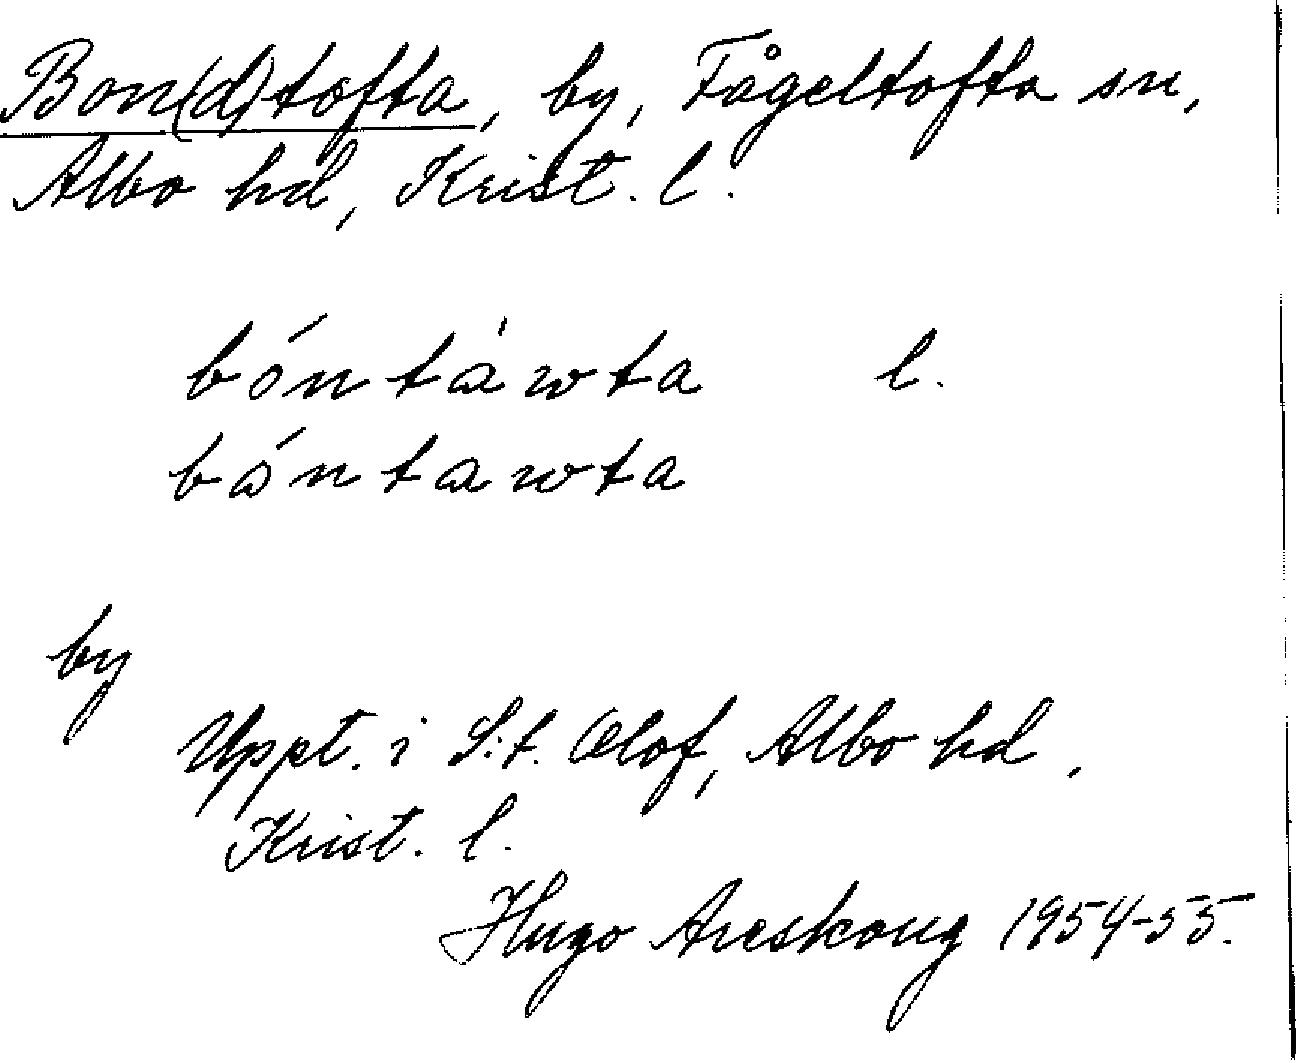 Bon(d)tofta, by, Fågeltofta sn,
Albo hd, Krist. l.
bóntàwta l.
bóntawta
by
Uppt. i S:t. Olof, Albo hd,
Krist. l.
Hugo Areskoug 1954-55.